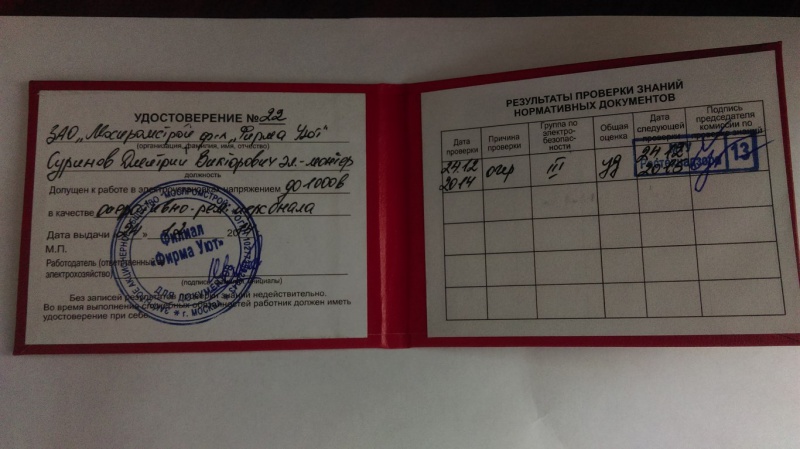 УДОСТОВЕРЕНИЕ №22
ЗАО "Моспромстрой" ф-л "Фирма Уют"
(организация, фамилия, имя, отчество)
Суринов Дмитрий Викторович эл.-монтёр
должность
Допущен к работе в электроустановках напряжением до 1000в
в качестве оперативно-рем. персонала
Дата выдачи «24»
М.П.
Работодатель (ответственный за
электрохозяйство)
(подпись, фамилия, инициалы)
Без записей результатов проверки знаний недействительно.
Во время выполнения служебных обязанностей работник должен иметь
удостоверение при себе.
Филиал
«Фирма Уют»
ДЛЯ ДОКУМЕНТОВ
г. МОСКВА
РЕЗУЛЬТАТЫ ПРОВЕРКИ ЗНАНИЙ
НОРМАТИВНЫХ ДОКУМЕНТОВ
Дата проверки
Причина проверки
Группа по электро-безопас-ности
Общая оценка
Дата следующей проверки
Подпись председателя комиссии по проверке знаний
24.12 2014 очер III уд 24.12 2015
Ростехнадзор 13